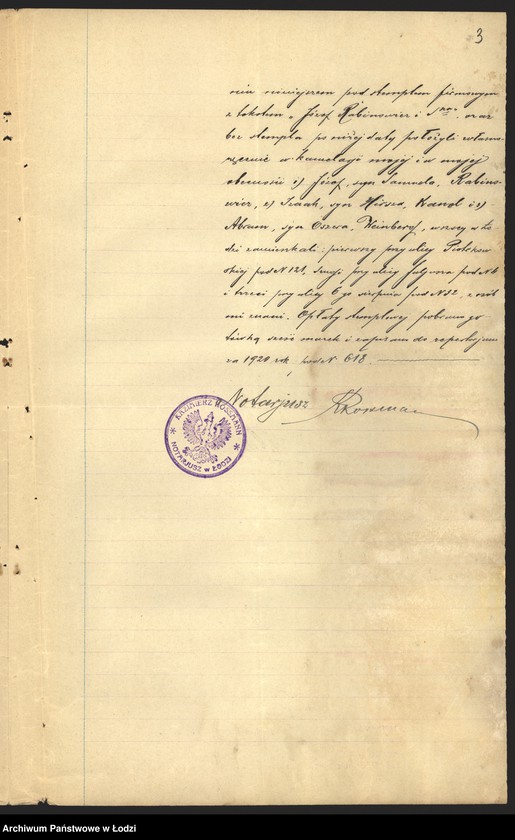 3
nia niniejszem pod stemplem firmowym
z tekstem „Józef Rabinowicz i S-ka" oraz
bez stempla poniżej daty położyli własno-
ręcznie w kancelarji mojej i w mojej
obecności 1) Józef, syn Samuela, Rabino-
wicz, 2) Izaak, syn Hersza, Kamel i 3)
Abram, syn Oszera, Weinberg, wszyscy w Ło-
dzi zamieszkali: pierwszy przy ulicy Piotrkow-
skiej pod N 121, drugi przy ulicy pod N
i trzeci przy ulicy 6-go sierpnia pod N 32, z osób
mi znani. Opłaty stemplowej pobrano go-
tówką sześć marek i zapisano do repertorjum
za 1920 rok pod N 618.
Notarjusz KRossman
KAZIMIERZ ROSSMANN
NOTARJUSZ w ŁODZI
Archiwum Państwowe w Łodzi